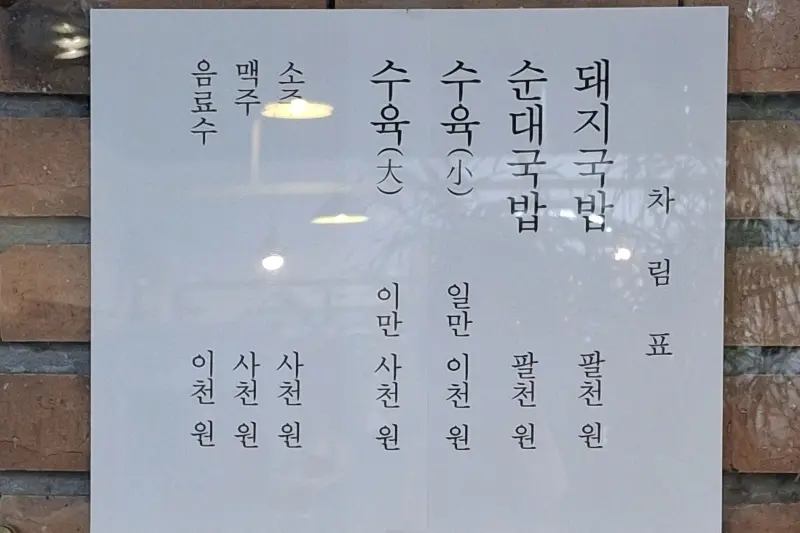 차림표
돼지국밥 팔천원
순대국밥 팔천원
수육(小) 일만 이천원
수육(大) 이만 사천원
소주 사천원
맥주 사천원
음료수 이천원